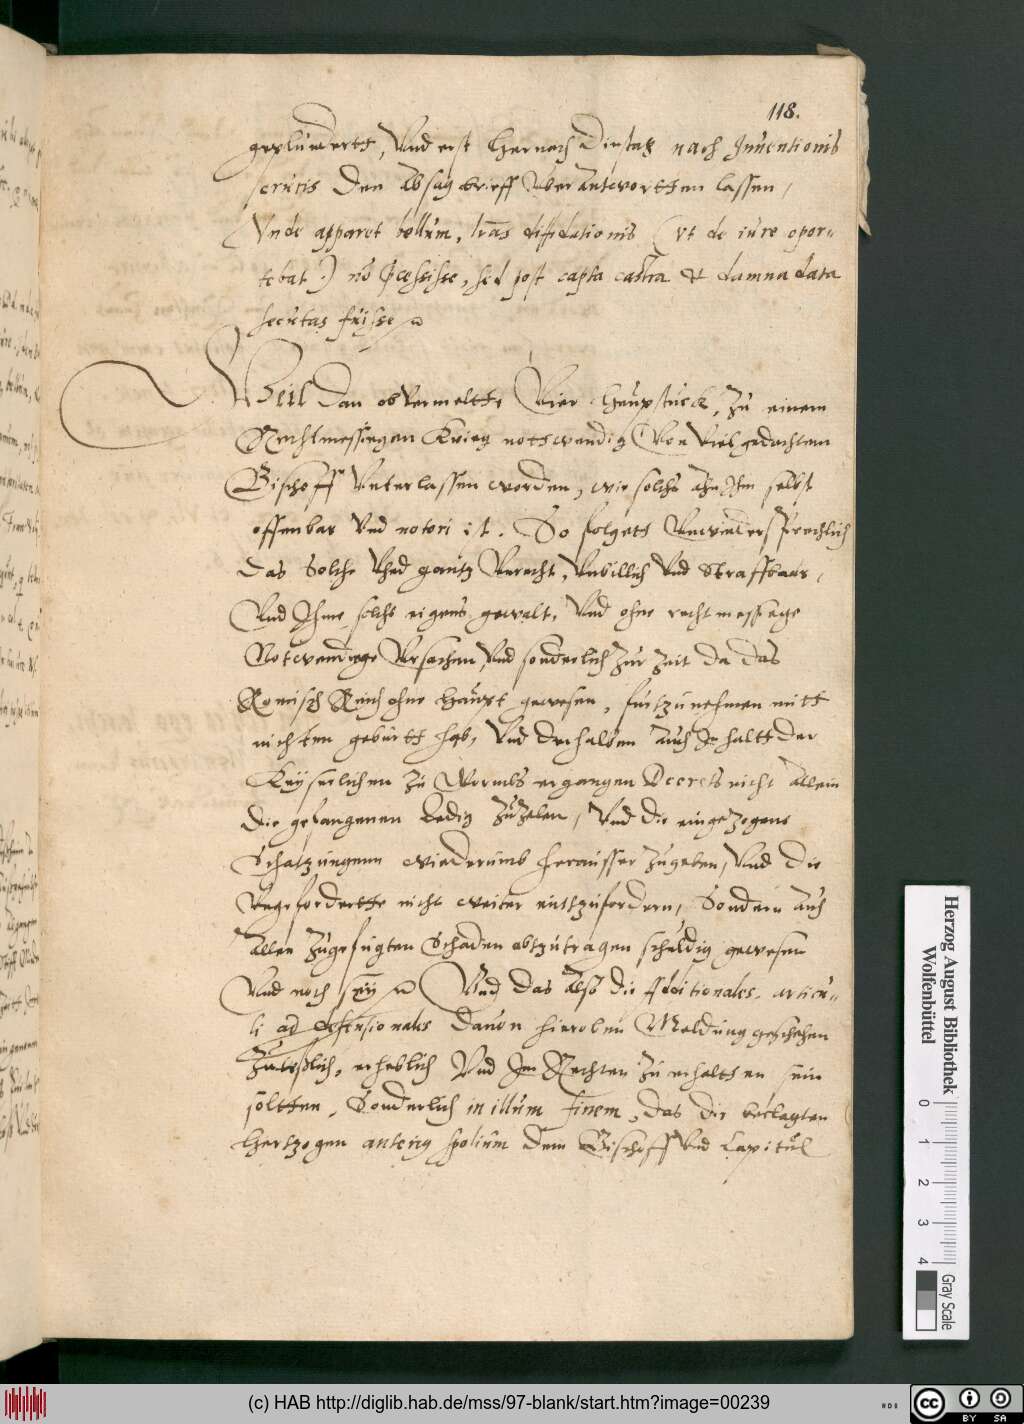 118.
geplundertt, Vnd erst hernach Dinstag nach Inuentionis
crucis den Absag brieff vberantwortten lassen,
Vnde apparet bellum, lras diffidationis (vt de iure opor-
tebat) no pcessisse, sed post capta castra et damna data
secutas fuisse
Weil dan obVermeltte Vier heuptstuck, zu einem
Rechtmessingen Krieg notwendig Von Vielgedachtem
Bischoff Vnterlassen worden, wie solchs An Ihm selbst
offenbar Vnd notori ist. So folgett Vnwidersprechlich
das solche Vhed gantz Vnrecht, Vnbillich Vnd straffbar,
Vnd Ihme solchs eigens gewalt, Vnd ohne rechtmessige
Notwendige Vrsachen Vnd sonderlich zur Zeit da das
Romisch Reich ohne haupt gewesen, furzunehmen mitt
nichten geburtt hab, Vnd derhalben auch Inhaltt der
Keyserlichen zu Wormbs ergangen Decrets nicht Allein
die gefangenen Ledig zuzelen, Vnd die eingezogene
Schatzungenn wiederumb herausser zugeben, Vnd die
Vngefordertte nicht weiter einzufordern, Sondern auch
Allen zugefugten Schaden abzutragen schuldig gewesen
Vnd noch sey Vnd das Also die Additionales articu-
li ad defensionales dauon hieroben Meldung geschehen
Zulesslich, erheblich Vnd Im Rechten zu erhaltten sein
soltten, Sonderlich in illum finem, das die beclagten
Hertzogen spolium dem Bischoff Vnd Capitul
Herzog August Bibliothek
Wolfenbüttel
0 1 2 3 4
Gray Scale
(c) HAB http://diglib.hab.de/mss/97-blank/start.htm?image=00239
cc BY SA